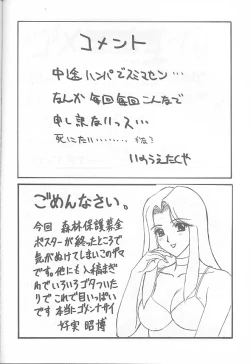 コメント
中途ハンパでスミマセン…
なんか毎回毎回こんなで
申し訳ないっス…
死にたい……
いのうえたくや
ごめんなさい。
今回 森林保護募金
ポスターが終ったところで
気がぬけてしまいこのザマ
です。他にも入稿まぎ
わでいろいろゴタついた
りで これで目いっぱいで
す 本当にゴメンナサイ
好実 昭博